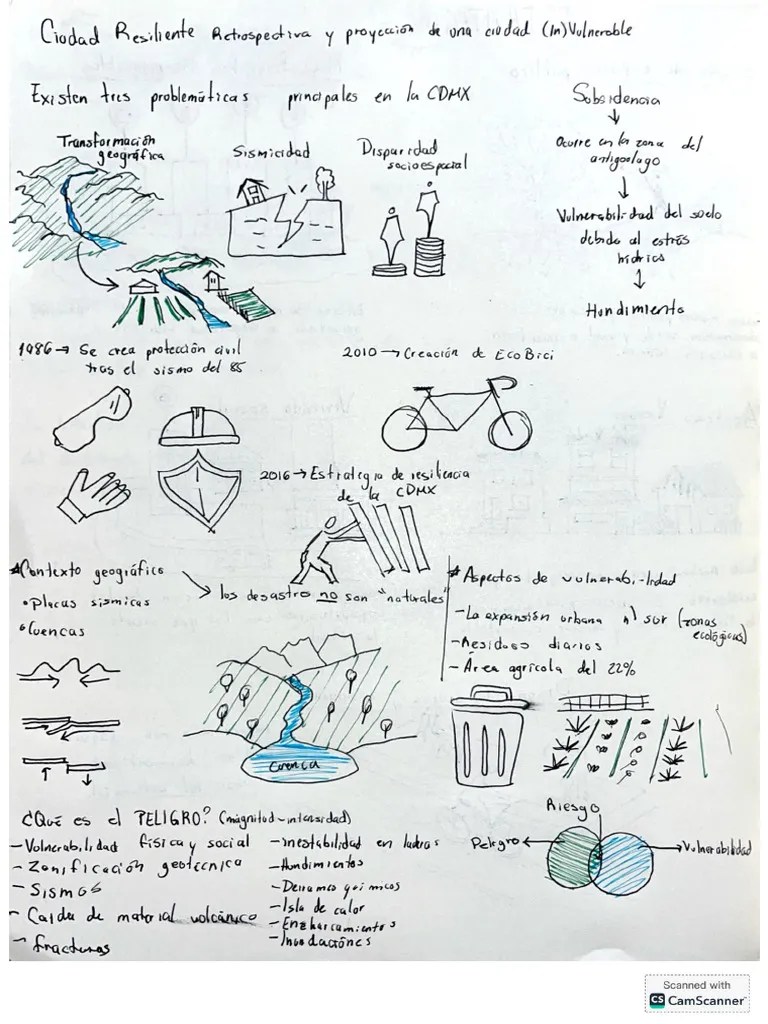 Ciudad Resiliente Retrospectiva y proyección de una ciudad (In)Vulnerable
Existen tres problemáticas principales en la CDMX
Transformación
geográfica
Sismicidad
Disparidad
socioespacial
Subsidencia
Ocurre en la zona del
antigüolago
Vulnerabilidad del suelo
debido al estrés
hídrico
Hundimiento
1986 → Se crea protección civil
tras el sismo del 85
2010 → Creación de EcoBici
2016 → Estrategia de resiliencia
de la CDMX
* Contexto geográfico
• Placas sísmicas
• Cuencas
los desastres no son "naturales"
Cuenca
* Aspectos de vulnerabilidad
- La expansión urbana al sur (zonas
ecológicas)
- Residuos diarios
- Área agrícola del 22%
¿Qué es el PELIGRO? (magnitud-intensidad)
- Vulnerabilidad física y social
- Zonificación geotécnica
- Sismos
- Caída de material volcánico
- fracturas
- Inestabilidad en laderas
- Hundimientos
- Derrames químicos
- Isla de calor
- Encharcamientos
- Inundaciones
Riesgo
Peligro
Vulnerabilidad
Scanned with
CS CamScanner